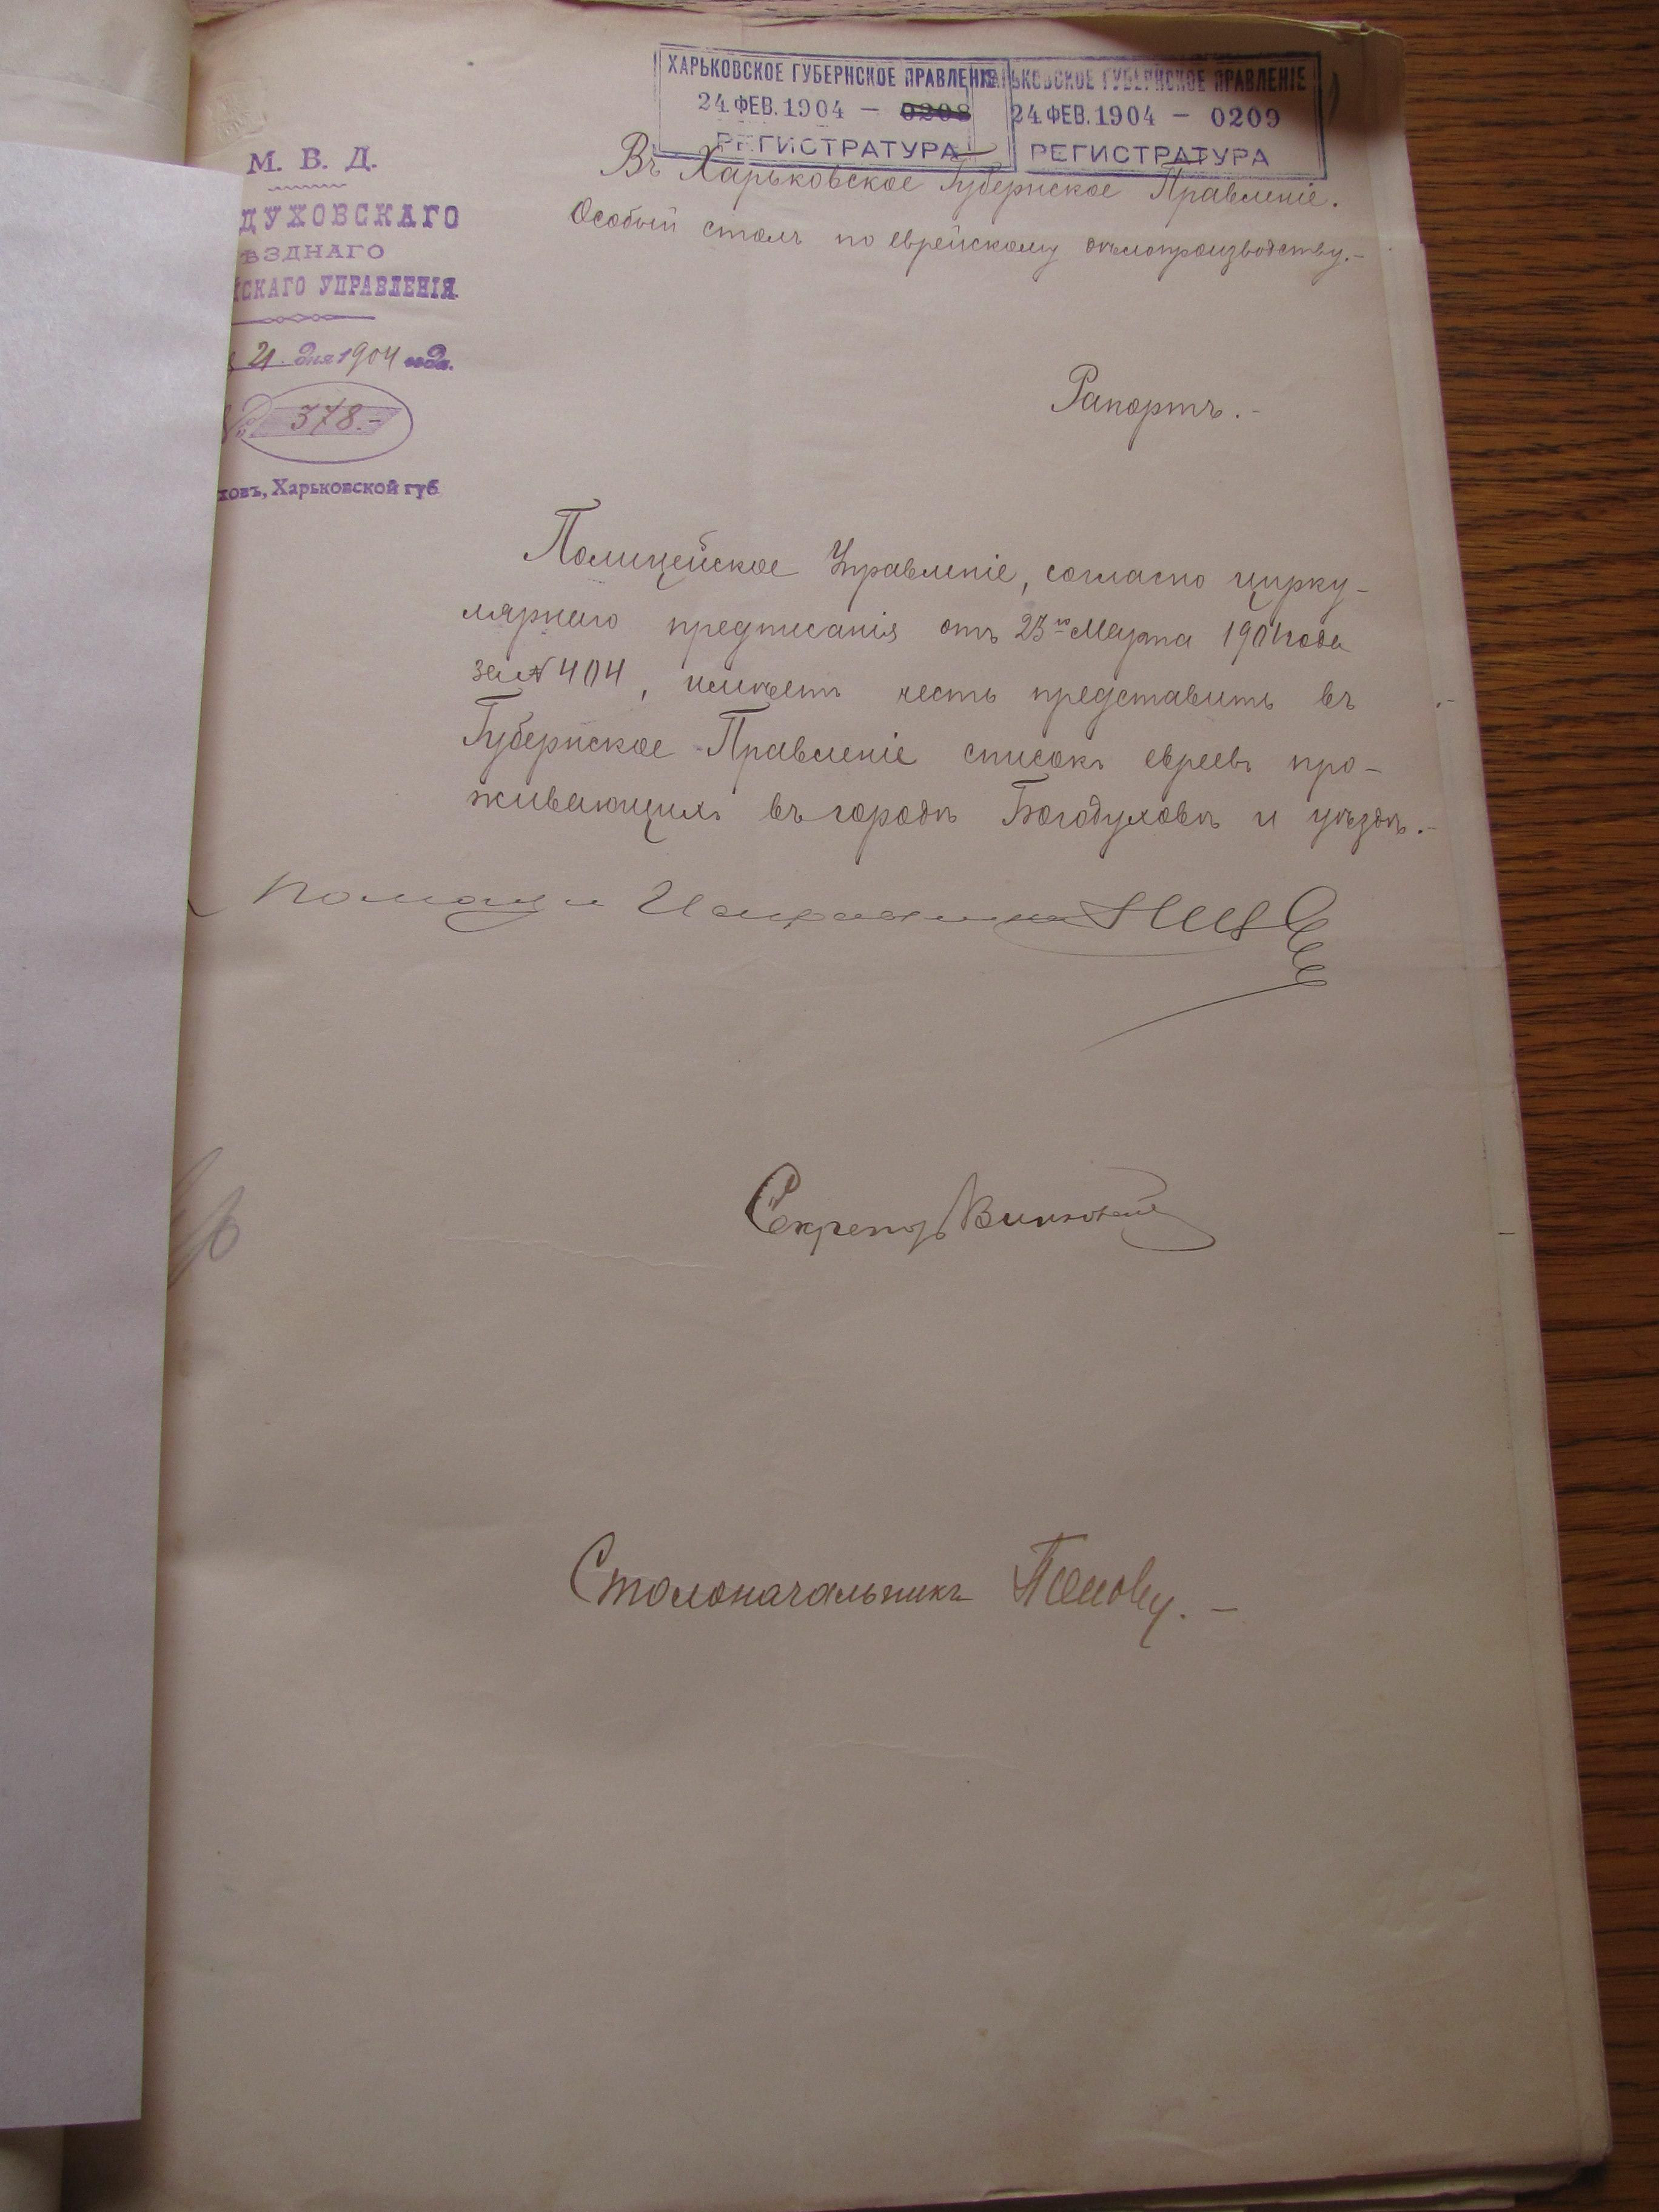 ХАРЬКОВСКОЕ ГУБЕРНСКОЕ ПРАВЛЕНІЕ
24 ФЕВ. 1904 — 0208
РЕГИСТРАТУРА
ХАРЬКОВСКОЕ ГУБЕРНСКОЕ ПРАВЛЕНІЕ
24 ФЕВ. 1904 — 0209
РЕГИСТРАТУРА
М. В. Д.
ДУХОВСКАГО
ѢЗДНАГО
ЙСКАГО УПРАВЛЕНІЯ
21 дня 1904 года.
№ 378.-
ховъ, Харьковской губ.
Въ Харьковское Губернское Правленіе.
Особый столъ по еврейскому дѣлопроизводству.-
Рапортъ.-
Полицейское Управленіе, согласно цирку-
лярнаго предписанія отъ 23го Марта 1901 года
за № 404, имѣетъ честь представить въ
Губернское Правленіе списокъ евреевъ про-
живающихъ въ городѣ Богодуховѣ и уѣздѣ.-
Помощн Исправника
Секретарь
Столоначальникъ